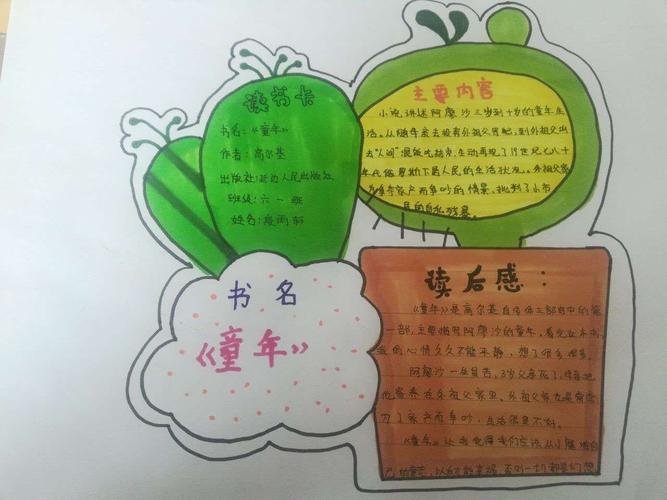 读书卡
书名:《童年》
作者:高尔基
出版社:延边人民出版社
班级:六一班
姓名:庞雨轩
主要内容
小说讲述阿廖沙三岁到十岁的童年生
活。从随母亲去投奔外祖父写起,到外祖父叫
去"人间"混饭吃结束,生动再现了19世纪七八十
年代俄罗斯下层人民的生活状况。外祖父家
争夺家产而争吵的情景,批判了小市
民的自私残暴。
书名
《童年》
读后感:
《童年》是高尔基自传体三部曲中的第
一部,主要描写阿廖沙的童年,看完这本书,
我的心情久久不能平静,想了很多很多。
阿廖沙一生真苦,3岁父亲死了,母亲把
他寄养在外祖父家里。外祖父家也是常常
为了家产而争吵,生活很是不好。
《童年》让我觉得我们应该从小